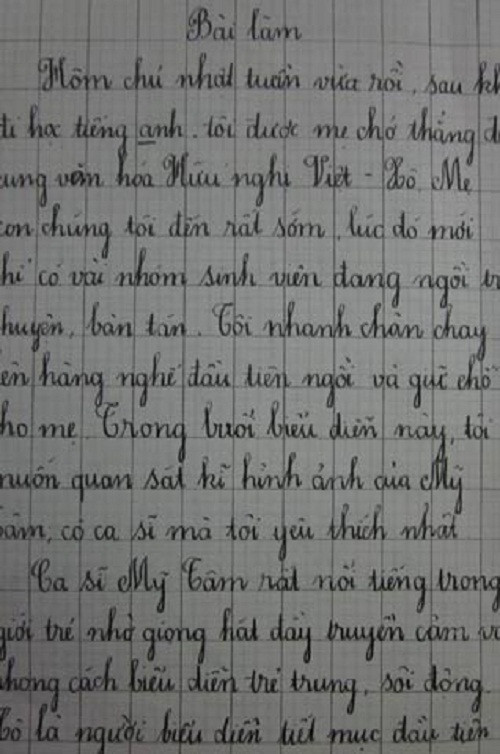 Bài làm
Hôm chủ nhật tuần vừa rồi, sau kh
đi học tiếng anh, tôi được mẹ chở thẳng đ
ung văn hóa Hữu nghị Việt - Xô. Mẹ
on chúng tôi đến rất sớm, lúc đó mới
hỉ có vài nhóm sinh viên đang ngồi tr
huyện, bàn tán. Tôi nhanh chân chạy
ên hàng nghế đầu tiên ngồi và giữ chỗ
ho mẹ. Trong buổi biểu diễn này, tôi
muốn quan sát kĩ hình ảnh của Mỹ
âm, cô ca sĩ mà tôi yêu thích nhất
Ca sĩ Mỹ Tâm rất nổi tiếng trong
giới trẻ nhờ giọng hát đầy truyền cảm và
phong cách biểu diễn trẻ trung, sôi động.
Cô là người biểu diễn tiết mục đầu tiên